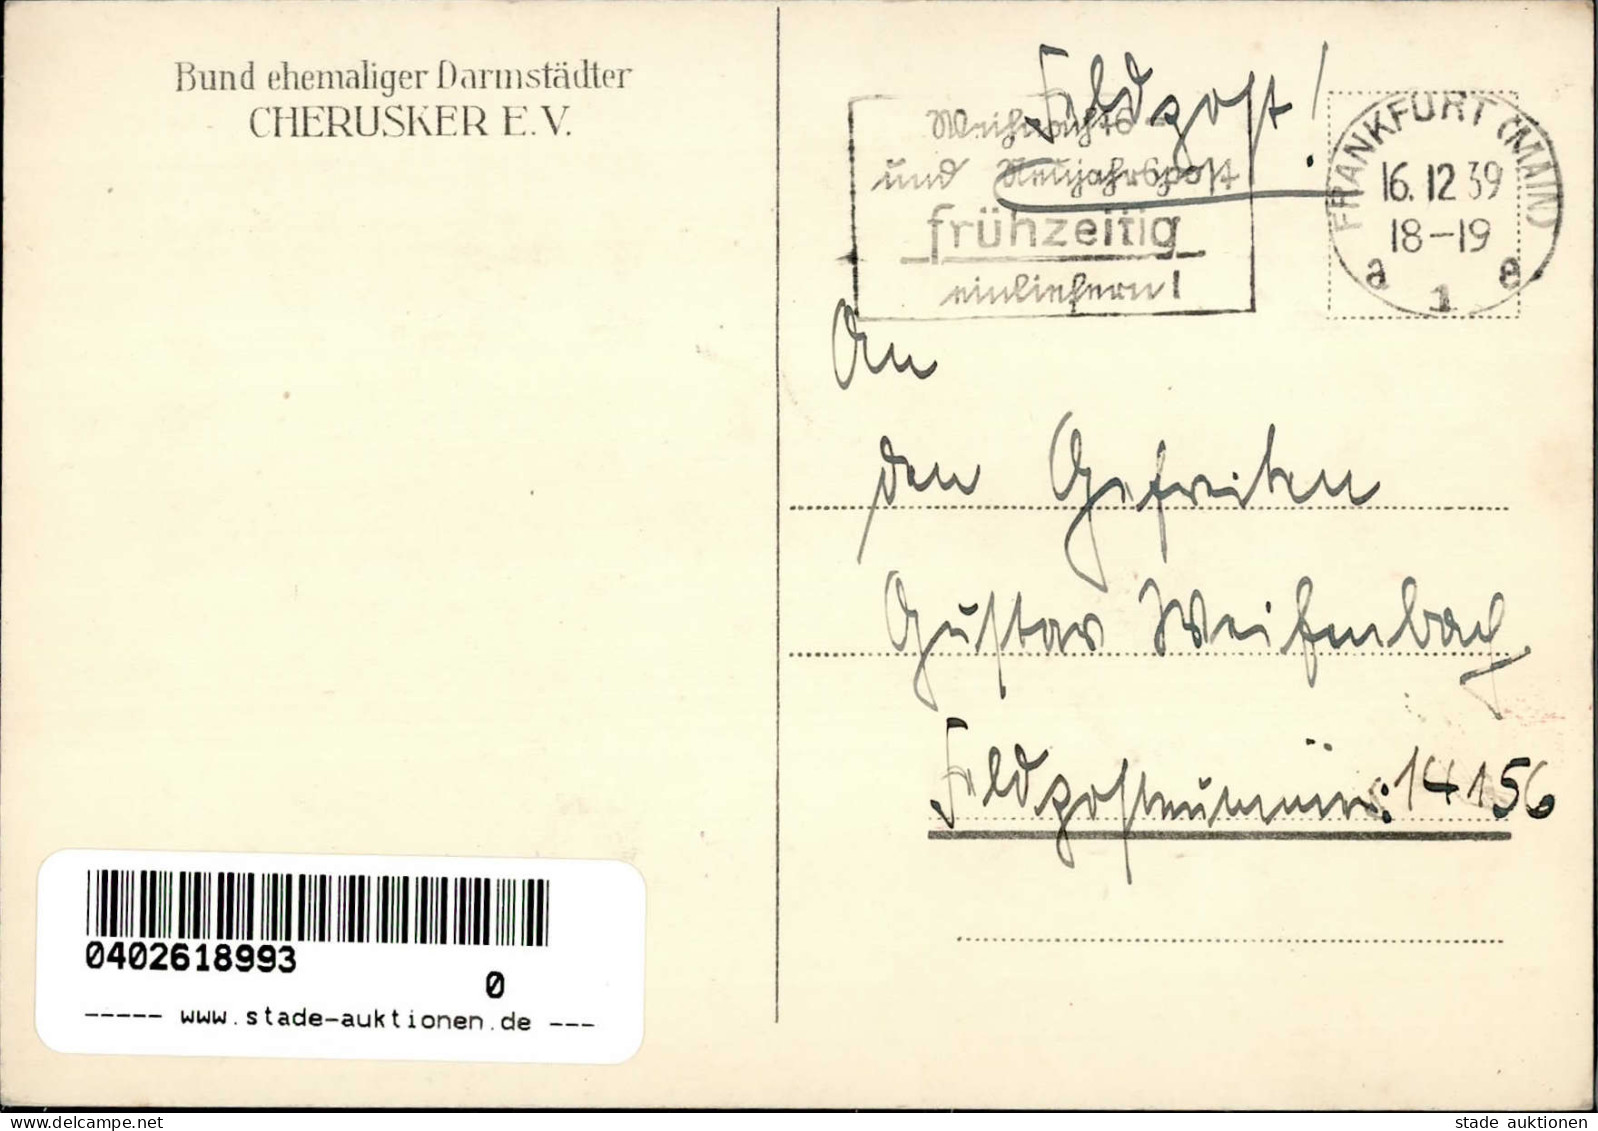 Bund ehemaliger Darmstädter
CHERUSKER E.V.
Feldpost!
Weihnachts-
und Neujahrspost
frühzeitig
einliefern!
FRANKFURT (MAIN)
16.12.39
18-19
a 1 e
An
den Gefreiten
Gustav Weifenbach
Feldpostnummer: 14156
0402618993
0
----- www.stade-auktionen.de ---
www.delcampe.net
stade auktionen